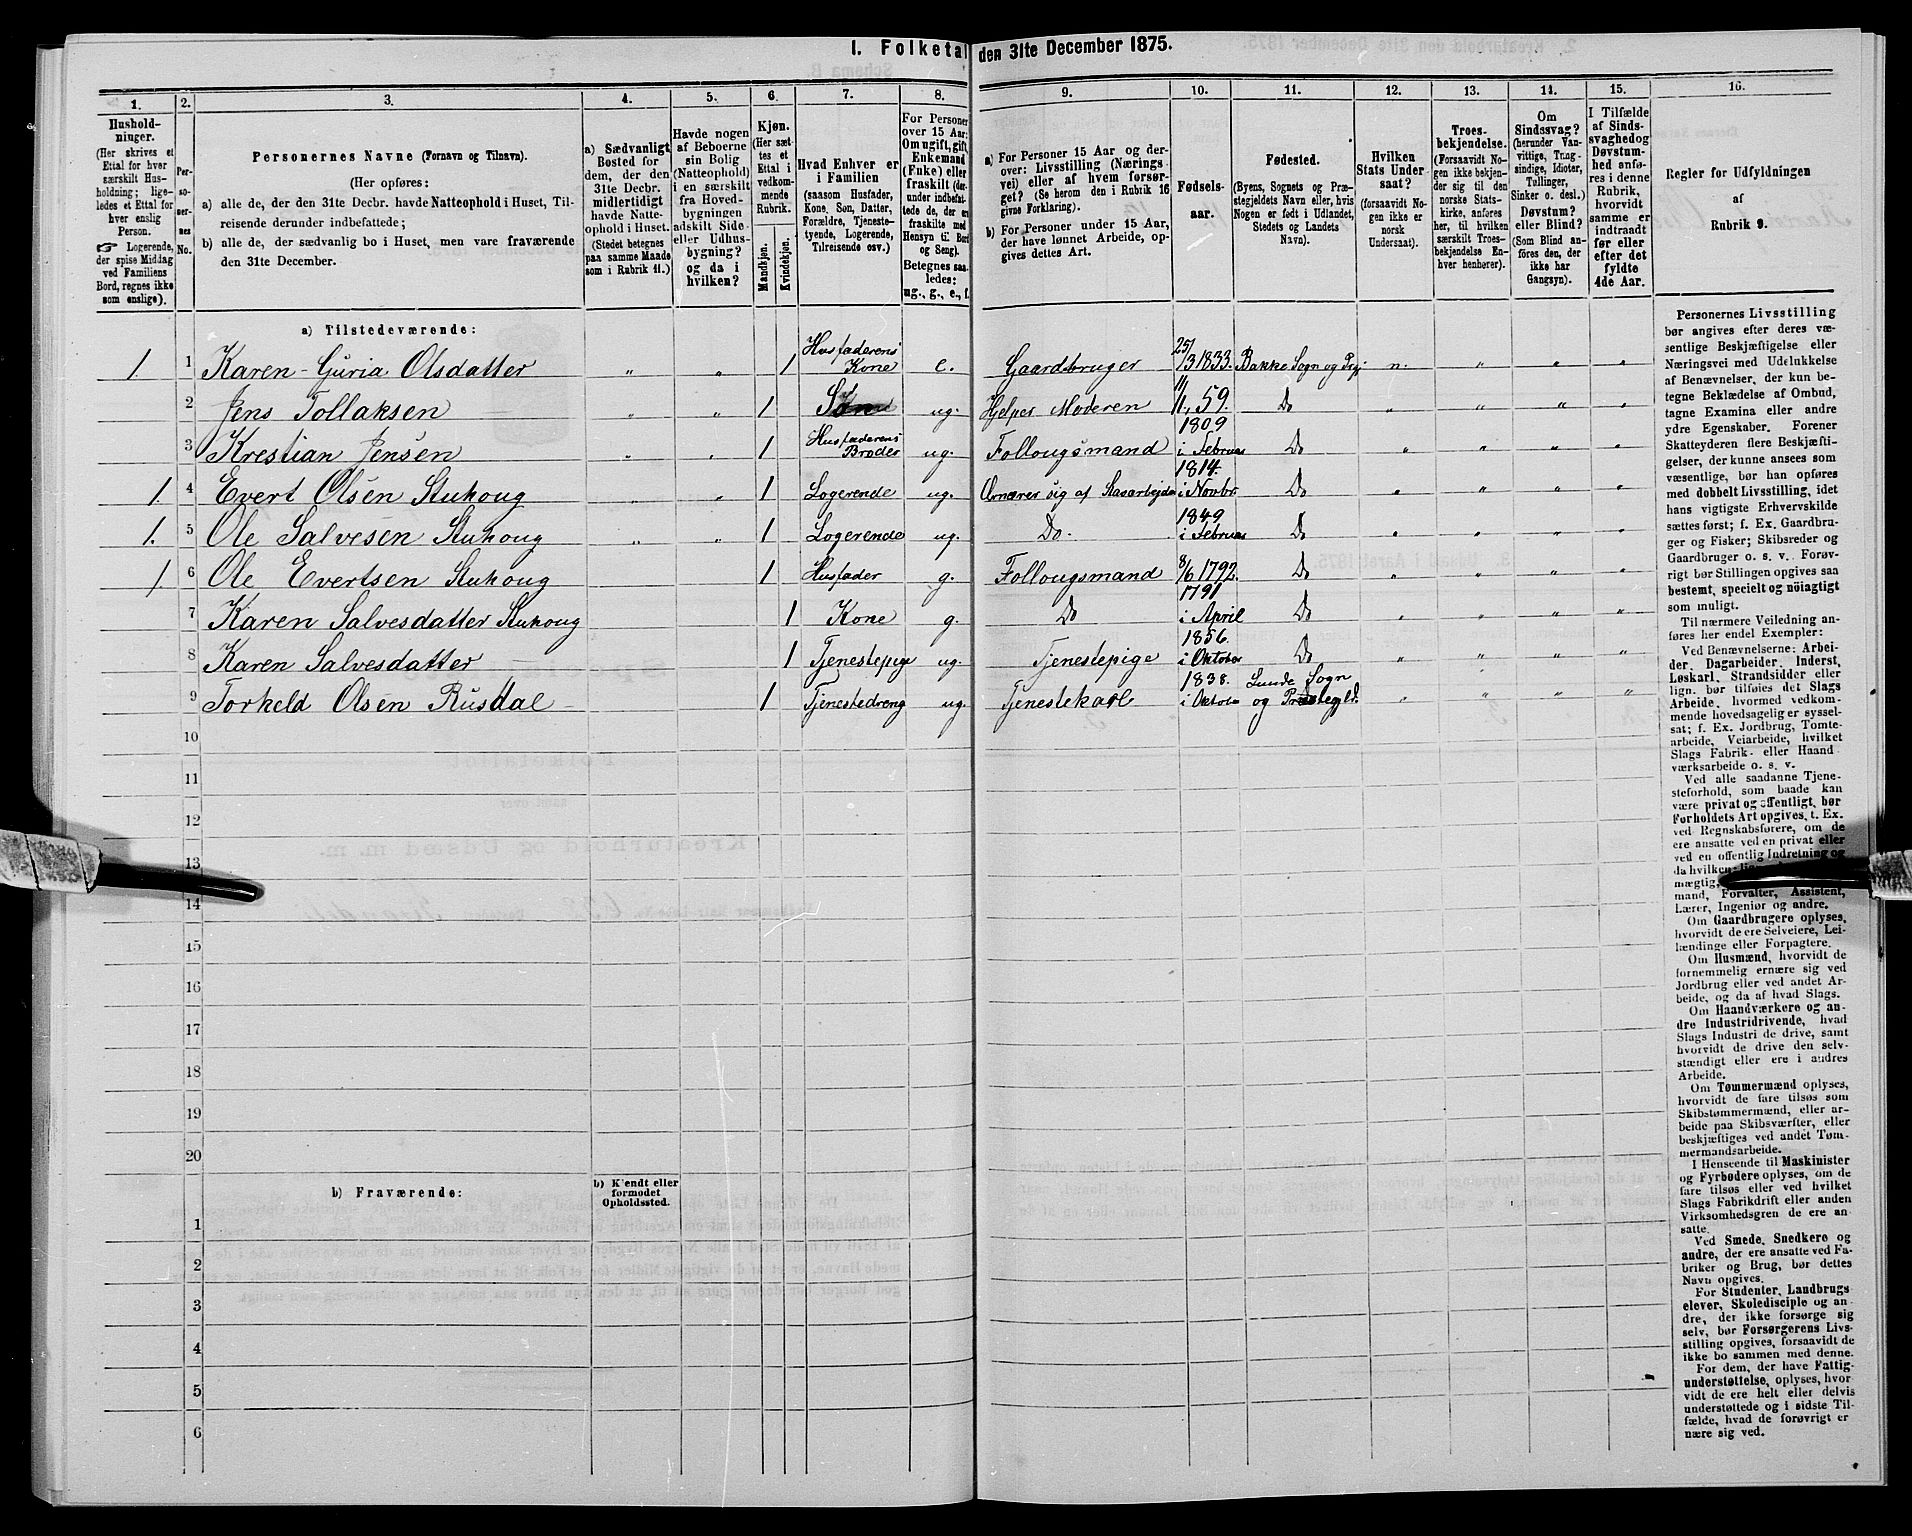 I. Folketal den 31te December 1875.
1. 2. 3. 4. 5. 6. 7. 8. 9. 10. 11. 12. 13. 14. 15. 16.
Hushold-
ninger.
(Her skrives et
Ettal for hver
særskilt Hus-
holdning; lige-
ledes et Ettal for
hver enslig
Person.
☞ Logerende,
der spise Middag
ved Familiens
Bord, regnes ikke
som enslige).
Per-
so-
ner-
nes
No.
Personernes Navne (Fornavn og Tilnavn).
(Her opføres:
a) alle de, der den 31te Decbr. havde Natteophold i Huset, Til-
reisende derunder indbefattede;
b) alle de, der sædvanlig bo i Huset, men vare fraværende
den 31te December.
a) Sædvanligt
Bosted for
dem, der den
31te Decbr.
midlertidigt
havde Natte-
ophold i Huset.
(Stedet betegnes
paa samme Maade
som i Rubrik 11.)
Havde nogen
af Beboerne
sin Bolig
(Natteophold)
i en særskilt
fra Hoved-
bygningen
adskilt Side-
eller Udhus-
bygning?
og da i
hvilken?
Kjøn.
(Her sæt-
tes et
Ettal i
vedkom-
mende
Rubrik.
Mandkjøn.
Kvindekjøn.
Hvad Enhver er
i Familien
(saasom Husfader,
Kone, Søn, Datter,
Forældre, Tjeneste-
tyende, Logerende,
Tilreisende osv.)
For Personer
over 15 Aar:
Om ugift, gift,
Enkemand
(Enke) eller
fraskilt (der-
under indbefat-
tede de, der ere
fraskilte med
Hensyn til Bord
og Seng).
Betegnes saa-
ledes:
ug., g., e., f.
a) For Personer 15 Aar og der-
over: Livsstilling (Nærings-
vei) eller af hvem forsør-
get? (Se herom den i Rubrik 16
givne Forklaring).
b) For Personer under 15 Aar,
der have lønnet Arbeide, op-
gives dettes Art.
Fødsels-
aar.
Fødested.
(Byens, Sognets og Præ-
stegjeldets Navn eller, hvis
Nogen er født i Udlandet,
Stedets og Landets
Navn).
Hvilken
Stats Under-
saat?
(forsaavidt No-
gen ikke er
norsk
Undersaat).
Troes-
bekjendelse.
(Forsaavidt No-
gen ikke bekjen-
der sig til den
norske Stats-
kirke, anføres
her, til hvilken
særskilt Troes-
bekjendelse En-
hver henhører).
Om
Sindssvag?
(herunder Van-
vittige, Tung-
sindige, Idioter,
Tullinger,
Sinker o. desl.)
Døvstum?
eller Blind?
(Som Blind an-
føres den, der
ikke har
Gangsyn).
I Tilfælde
af Sinds-
svaghed og
Døvstum-
hed anfø-
res i denne
Rubrik,
hvorvidt
samme er
indtraadt
før eller
efter det
fyldte
4de Aar.
Regler for Udfyldningen
af
Rubrik 9.
a) Tilstedeværende:
1 1 Karen-Guria Olsdatter " " 1 Husfaderens Kone e. Gaardbruger 25/3 1833. Bakke Sogn og Prgj n. " " "
2 Jens Tollaksen " " 1 Søn ug. Hjelper Moderen 11/1 59. Do " " " "
3 Krestian Jensen " " 1 Husfaderens Broder ug. Follougsmand 1809 i Februar Do " " " "
1. 4 Evert Olsen Stuhoug " " 1 Logerende ug. Ernærer sig af Stasarbejde 1814. i Novbr Do " " " "
1. 5 Ole Salvesen Stuhoug " " 1 Logerende ug. Do. 1849 i Februar Do " " " "
1 6 Ole Evertsen Stuhoug 1 Husfader g. Follougsmand 8/6 1792. Do " " " "
7 Karen Salvesdatter Stuhoug 1 Kone g. Do 1791 i April Do " " " "
8 Karen Salvesdatter 1 Tjenestepige ug. Tjenestepige 1856. i Oktober Do " " " "
9 Torkeld Olsen Rusdal 1 Tjenestedreng ug. Tjenestekarl 1838. i Oktober Lunde Sogn og Præstegjld. " " " "
10
11
12
13
14
15
16
17
18
19
20
b) Fraværende:
b) Kjendt eller
formodet
Opholdssted.
1
2
3
4
5
6
Personernes Livsstilling
bør angives efter deres væ-
sentlige Beskjæftigelse eller
Næringsvei med Udelukkelse
af Benævnelser, der kun be-
tegne Beklædelse af Ombud,
tagne Examina eller andre
ydre Egenskaber. Forener
Skatteyderen flere Beskjæfti-
gelser, der kunne ansees som
væsentlige, bør han opføres
med dobbelt Livsstilling, idet
hans vigtigste Erhvervskilde
sættes først; f. Ex. Gaardbru-
ger og Fisker; Skibsreder og
Gaardbruger o. s. v. Forøv-
rigt bør Stillingen opgives saa
bestemt, specielt og nøiagtigt
som muligt.
Til nærmere Veiledning an-
føres her endel Exempler:
Ved Benævnelserne: Arbei-
der, Dagarbeider, Inderst,
Løskarl, Strandsidder eller
lign. bør tilføies det Slags
Arbeide, hvormed vedkom-
mende hovedsagelig er syssel-
sat; f. Ex. Jordbrug, Tomte-
arbeide, Veiarbeide, hvilket
Slags Fabrik- eller Haand
værksarbeide o. s. v.
Ved alle saadanne Tjene-
steforhold, som baade kan
være privat og offentligt, bør
Forholdets Art opgives, t. Ex.
ved Regnskabsførere, om de
ere ansatte ved en privat eller
ved en offentlig Indretning og
da hvilken;
mægtig,
mand, Forvalter, Assistent,
Lærer, Ingeniør og andre.
Om Gaardbrugere oplyses,
hvorvidt de ere Selveiere, Lei-
lændinge eller Forpagtere.
Om Husmænd, hvorvidt de
fornemmelig ernære sig ved
Jordbrug eller ved andet Ar-
beide, og da af hvad Slags.
Om Haandværkere og an-
dre Industridrivende, hvad
Slags Industri de drive, samt
hvorvidt de drive den selv-
stændigt eller ere i andres
Arbeide.
Om Tømmermænd oplyses,
hvorvidt de fare tilsøs som
Skibstømmermænd, eller ar-
beide paa Skibsværfter, eller
beskjæftiges ved andet Tøm-
mermandsarbeide.
I Henseende til Maskinister
og Fyrbødere oplyses, om de
fare tilsøs eller ved hvilket
Slags Fabrikdrift eller anden
Virksomhedsgren de ere an-
satte.
Ved Smede, Snedkere og
andre, der ere ansatte ved Fa-
briker og Brug, bør dettes
Navn opgives.
For Studenter, Landbrugs-
elever, Skoledisciple og an-
dre, der ikke forsørge sig
selv, bør Forsørgerens Livs-
stilling opgives, forsaavidt de
ikke bo sammen med denne.
For dem, der have Fattig-
understøttelse, oplyses, hvor-
vidt de ere helt eller delvis
understøttede og i sidste Til-
fælde, hvad de forøvrigt er
nære sig ved.